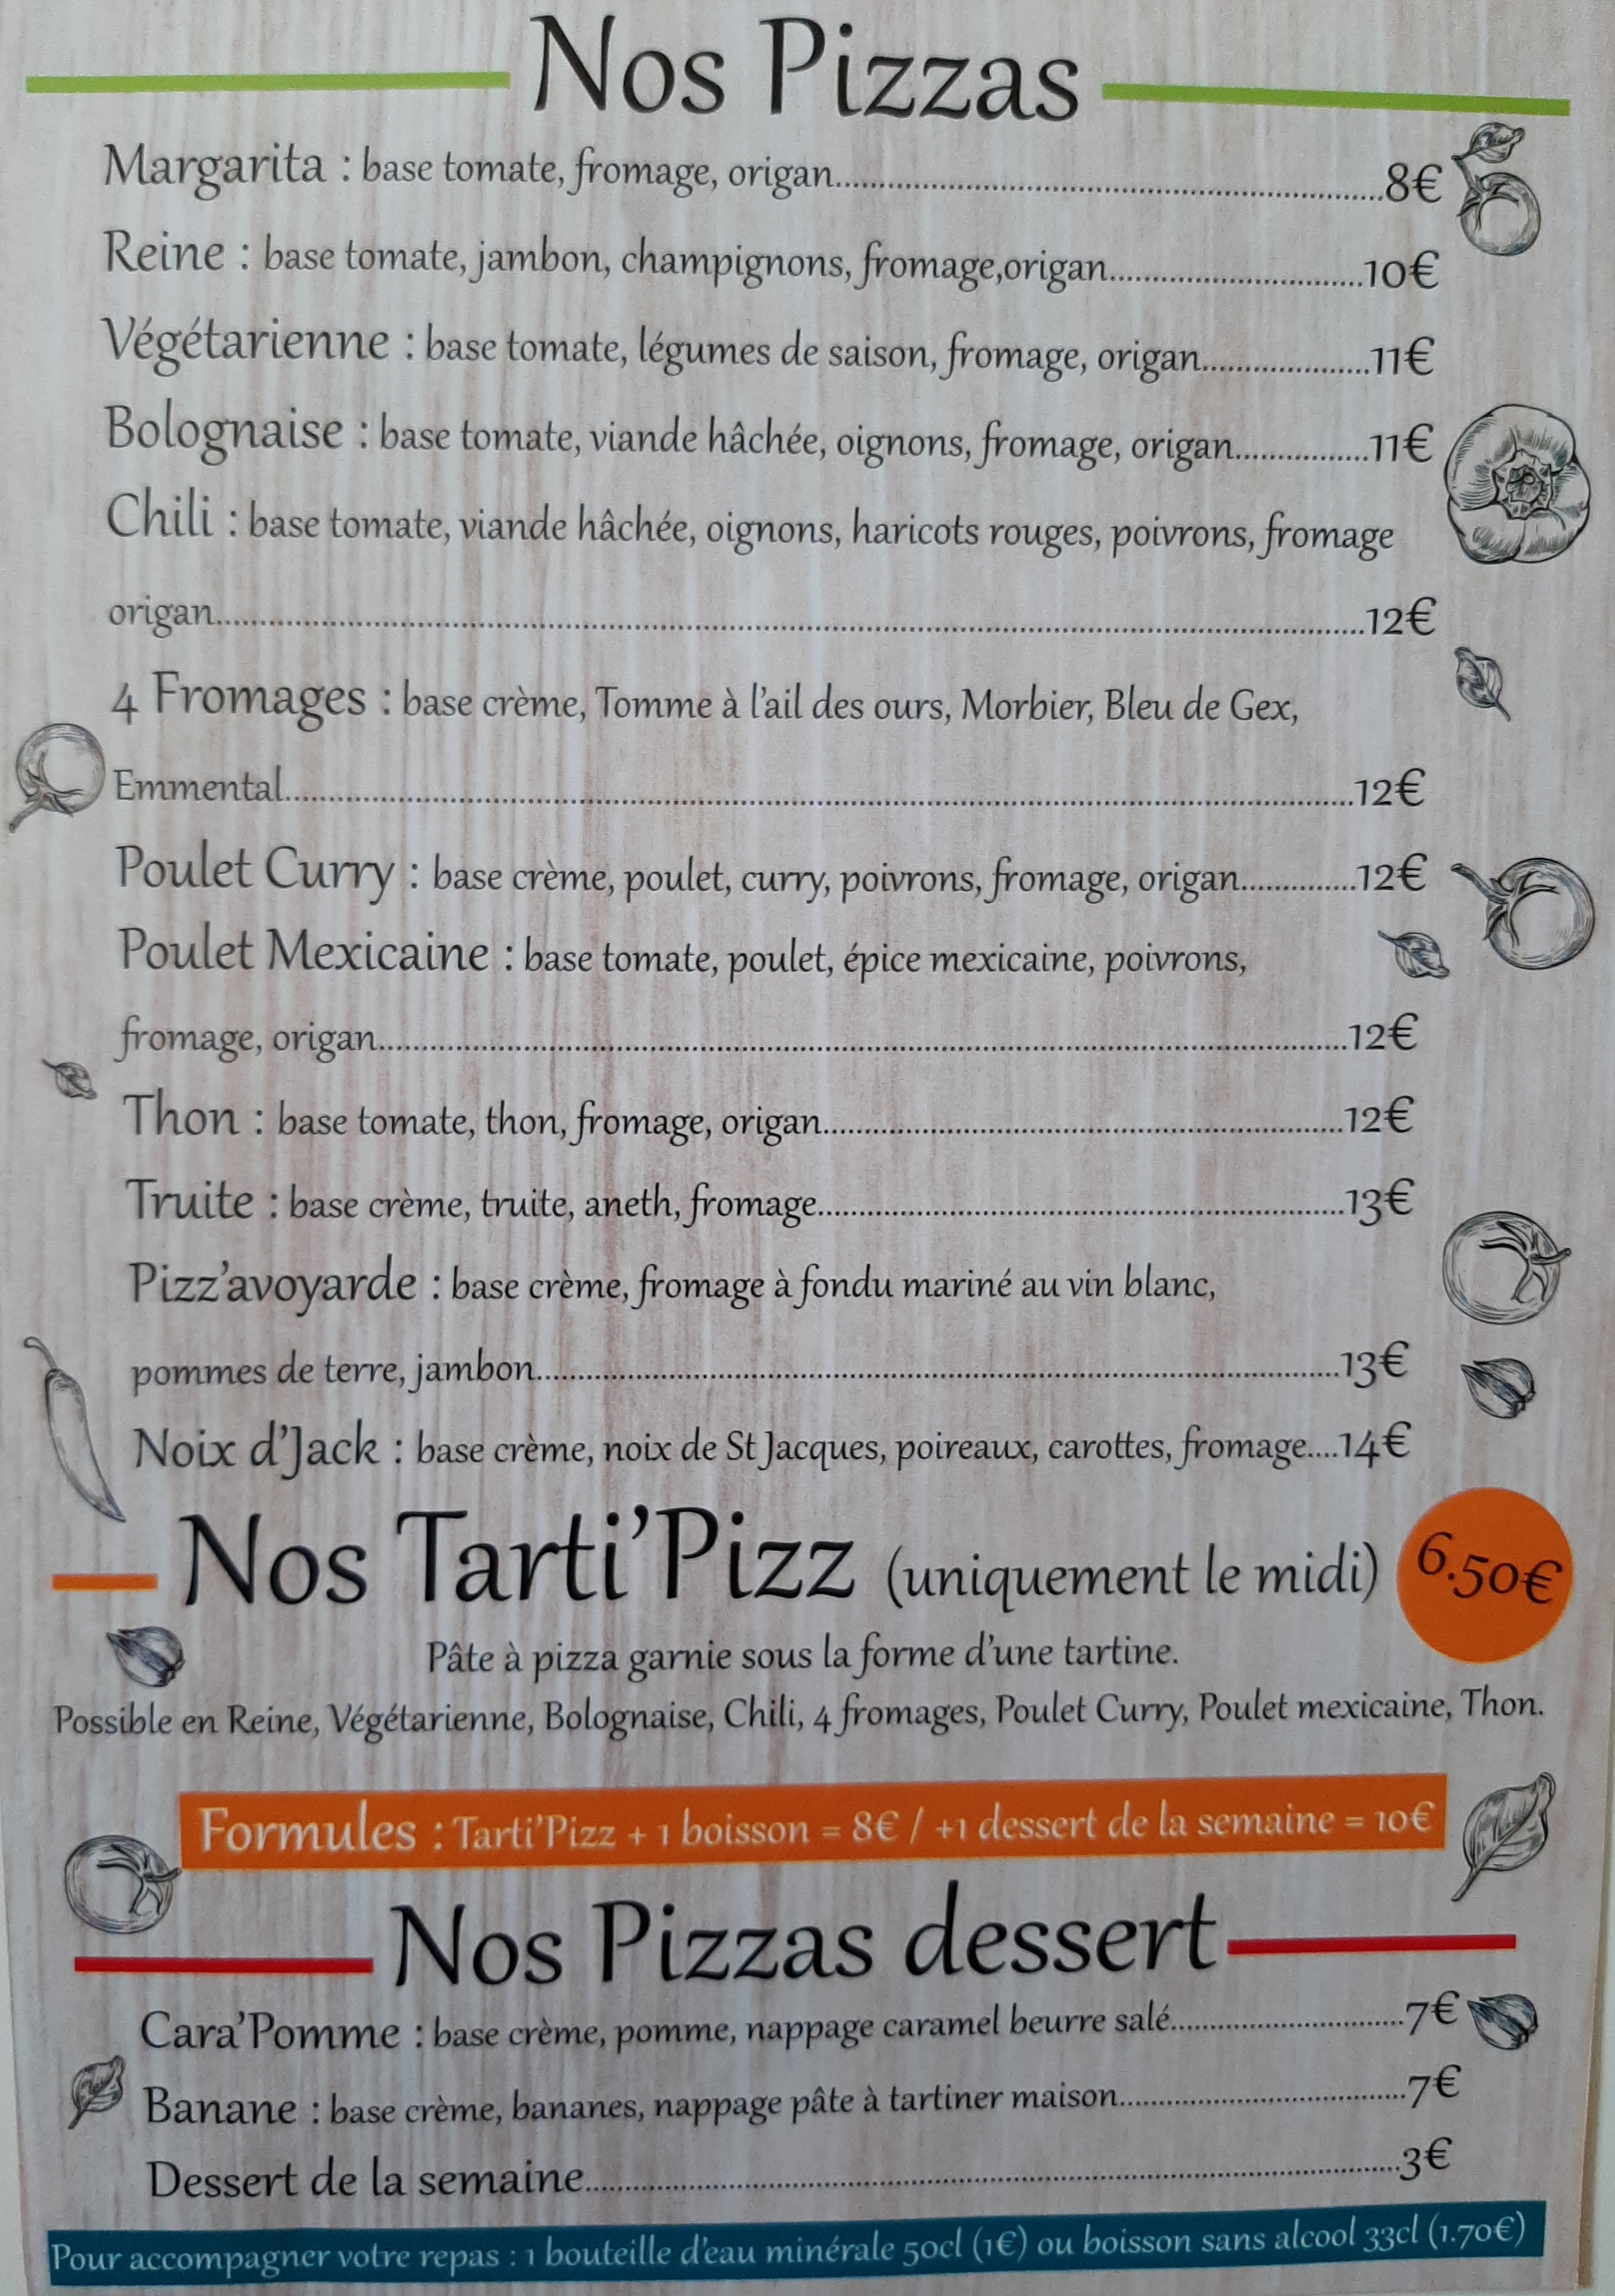 Nos Pizzas
Margarita : base tomate, fromage, origan..........8€
Reine : base tomate, jambon, champignons, fromage,origan..........10€
Végétarienne : base tomate, légumes de saison, fromage, origan..........11€
Bolognaise : base tomate, viande hâchée, oignons, fromage, origan..........11€
Chili : base tomate, viande hâchée, oignons, haricots rouges, poivrons, fromage
origan..........12€
4 Fromages : base crème, Tomme à l'ail des ours, Morbier, Bleu de Gex,
Emmental..........12€
Poulet Curry : base crème, poulet, curry, poivrons, fromage, origan..........12€
Poulet Mexicaine : base tomate, poulet, épice mexicaine, poivrons,
fromage, origan..........12€
Thon : base tomate, thon, fromage, origan..........12€
Truite : base crème, truite, aneth, fromage..........13€
Pizz'avoyarde : base crème, fromage à fondu mariné au vin blanc,
pommes de terre, jambon..........13€
Noix d'Jack : base crème, noix de St Jacques, poireaux, carottes, fromage....14€
Nos Tarti'Pizz (uniquement le midi) 6.50€
Pâte à pizza garnie sous la forme d'une tartine.
Possible en Reine, Végétarienne, Bolognaise, Chili, 4 fromages, Poulet Curry, Poulet mexicaine, Thon.
Formules : Tarti'Pizz + 1 boisson = 8€ / +1 dessert de la semaine = 10€
Nos Pizzas dessert
Cara'Pomme : base crème, pomme, nappage caramel beurre salé..........7€
Banane : base crème, bananes, nappage pâte à tartiner maison..........7€
Dessert de la semaine..........3€
Pour accompagner votre repas : 1 bouteille d'eau minérale 50cl (1€) ou boisson sans alcool 33cl (1.70€)